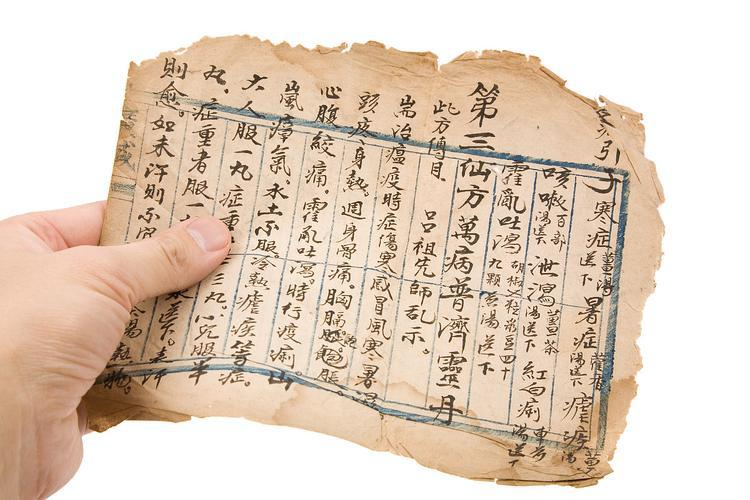 引子 寒症 薑湯送下 暑症 藿香湯送下 瘧疾 薑湯
咳嗽 百部湯送下 泄瀉 薑茶湯送下 紅白痢 車前湯送下
霍亂吐瀉 胡椒 粒菉豆四十九顆煎湯送下
第三仙方萬病普濟靈丹
此方傳自 呂祖先師乩示。
耑治瘟疫時症傷寒感冒風寒暑濕
頭疼、身熱。週身骨痛。胸膈飽脹
心腹絞痛。霍亂吐瀉。時行疫痢。山
嵐瘴氣。水土不服。冷熱瘧疾等症。
大人服一丸 症重 三丸。小兒服半
丸、症重者服一 水送下。蓋汗
則愈。如未汗則不宜 熱物。